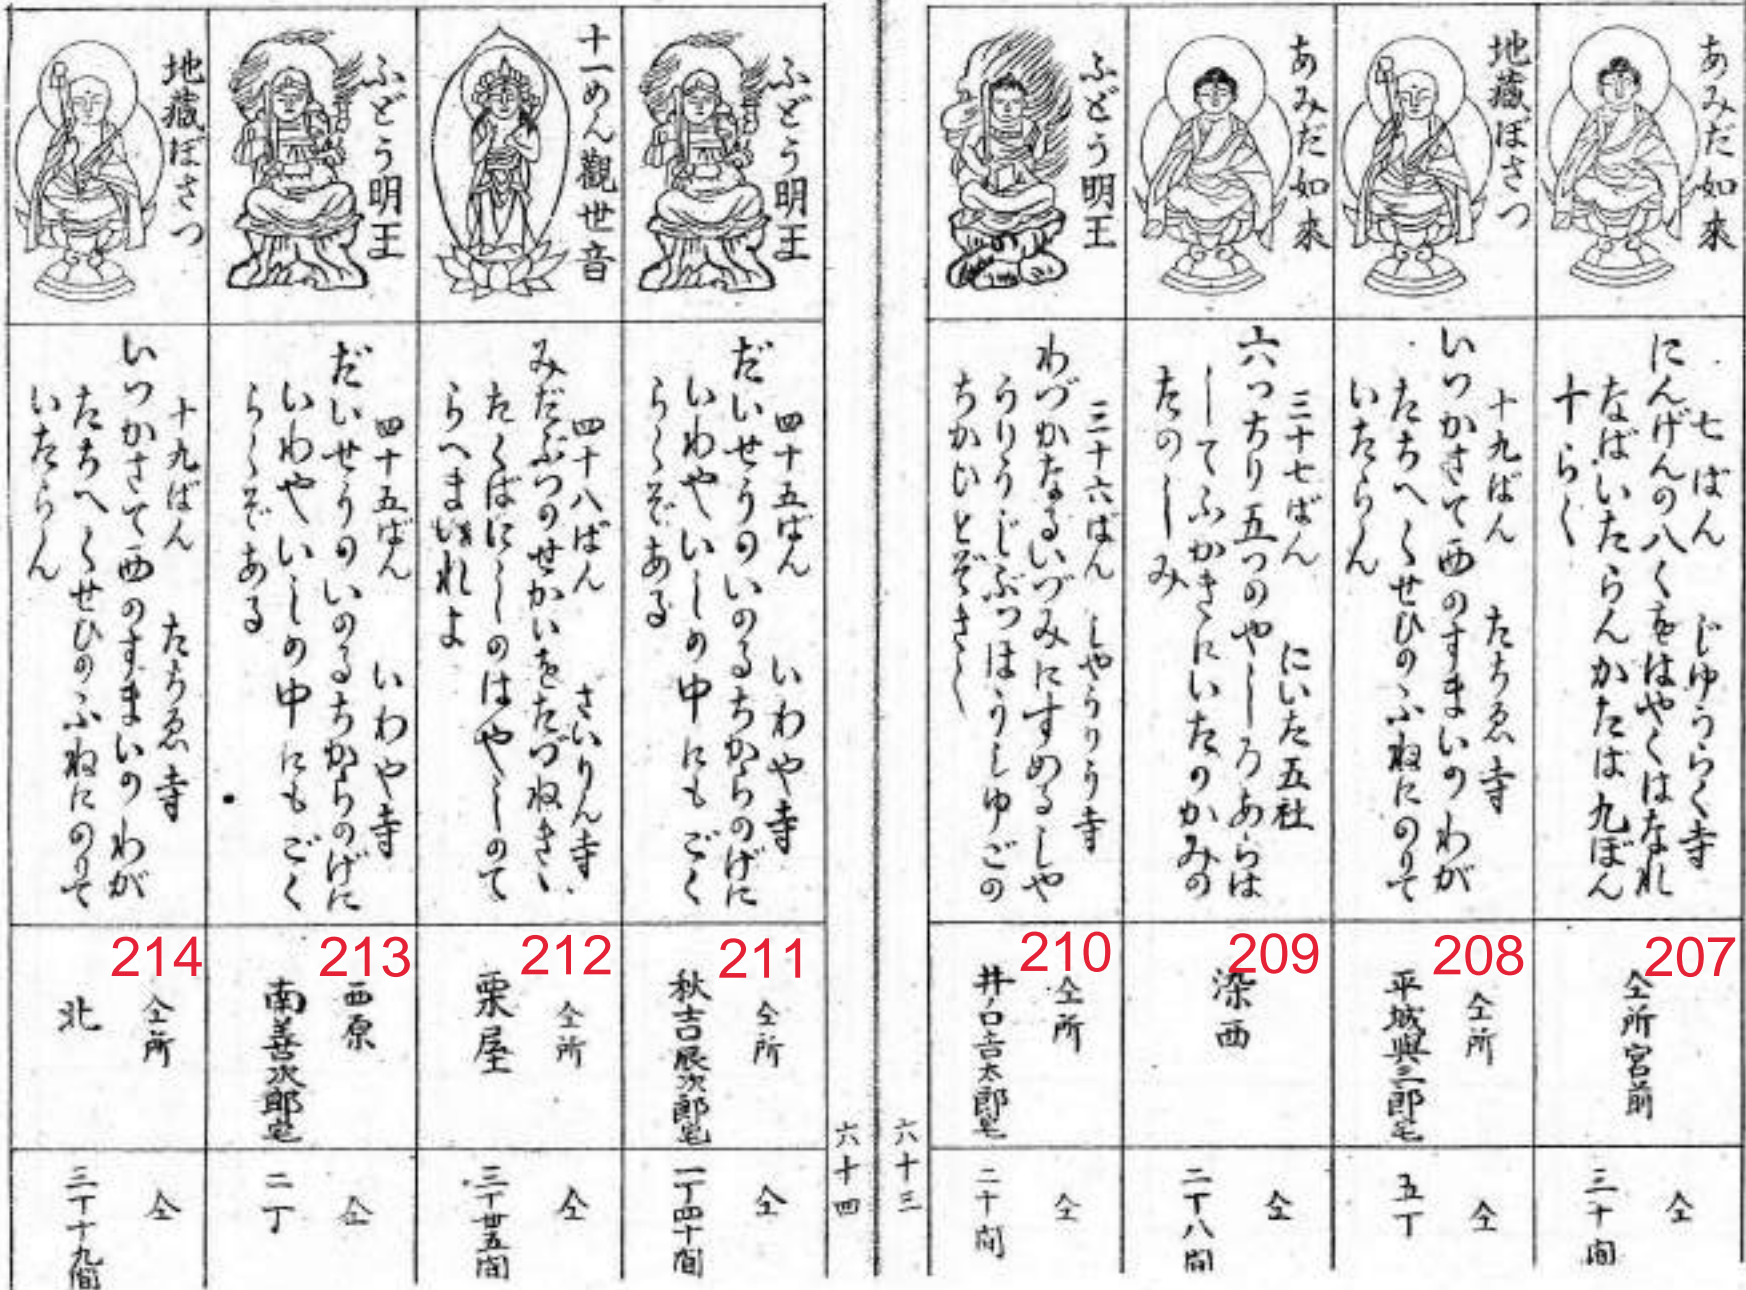 あみだ如來
七ばん　じゆうらく寺
にんげんの八くをはやくはなれ
なばいたらんかたは九ぼん
十らく
207
仝所宮前
仝
三十間
地蔵ぼさつ
十九ばん　たちゑ寺
いつかさて西のすまいのわが
たちへ〱せひのふねにのりて
いたらん
208
仝所
平城與三郎宅
仝
五丁
あみだ如來
三十七ばん　にいた五社
六つちり五つのやしろあらは
してふかきにいたのかみの
たのしみ
209
染西
仝
二丁八間
ふどう明王
三十六ばん　しやうりう寺
わづかなるいづみにすめるしや
うりうじぶつほうしゆごの
ちかひとぞきく
210
仝所
井口吉太郎宅
仝
二十間
六十三
六十四
ふどう明王
四十五ばん　いわや寺
だいせうのいのるちからのげに
いわやいしの中にもごく
らくぞある
211
仝所
秋吉辰次郎宅
仝
一丁四十間
十一めん觀世音
四十八ばん　さいりん寺
みだぶつのせかいをたづねきゝ
たくばにしのはやしのて
らへまいれよ
212
仝所
栗屋
仝
三丁廿五間
ふどう明王
四十五ばん　いわや寺
だいせうのいのるちからのげに
いわやいしの中にもごく
らくぞある
213
西原
南善次郎宅
仝
二丁
地蔵ぼさつ
十九ばん　たちゑ寺
いつかさて西のすまいのわが
たちへ〱せひのふねにのりて
いたらん
214
仝所
北
仝
三丁十九間